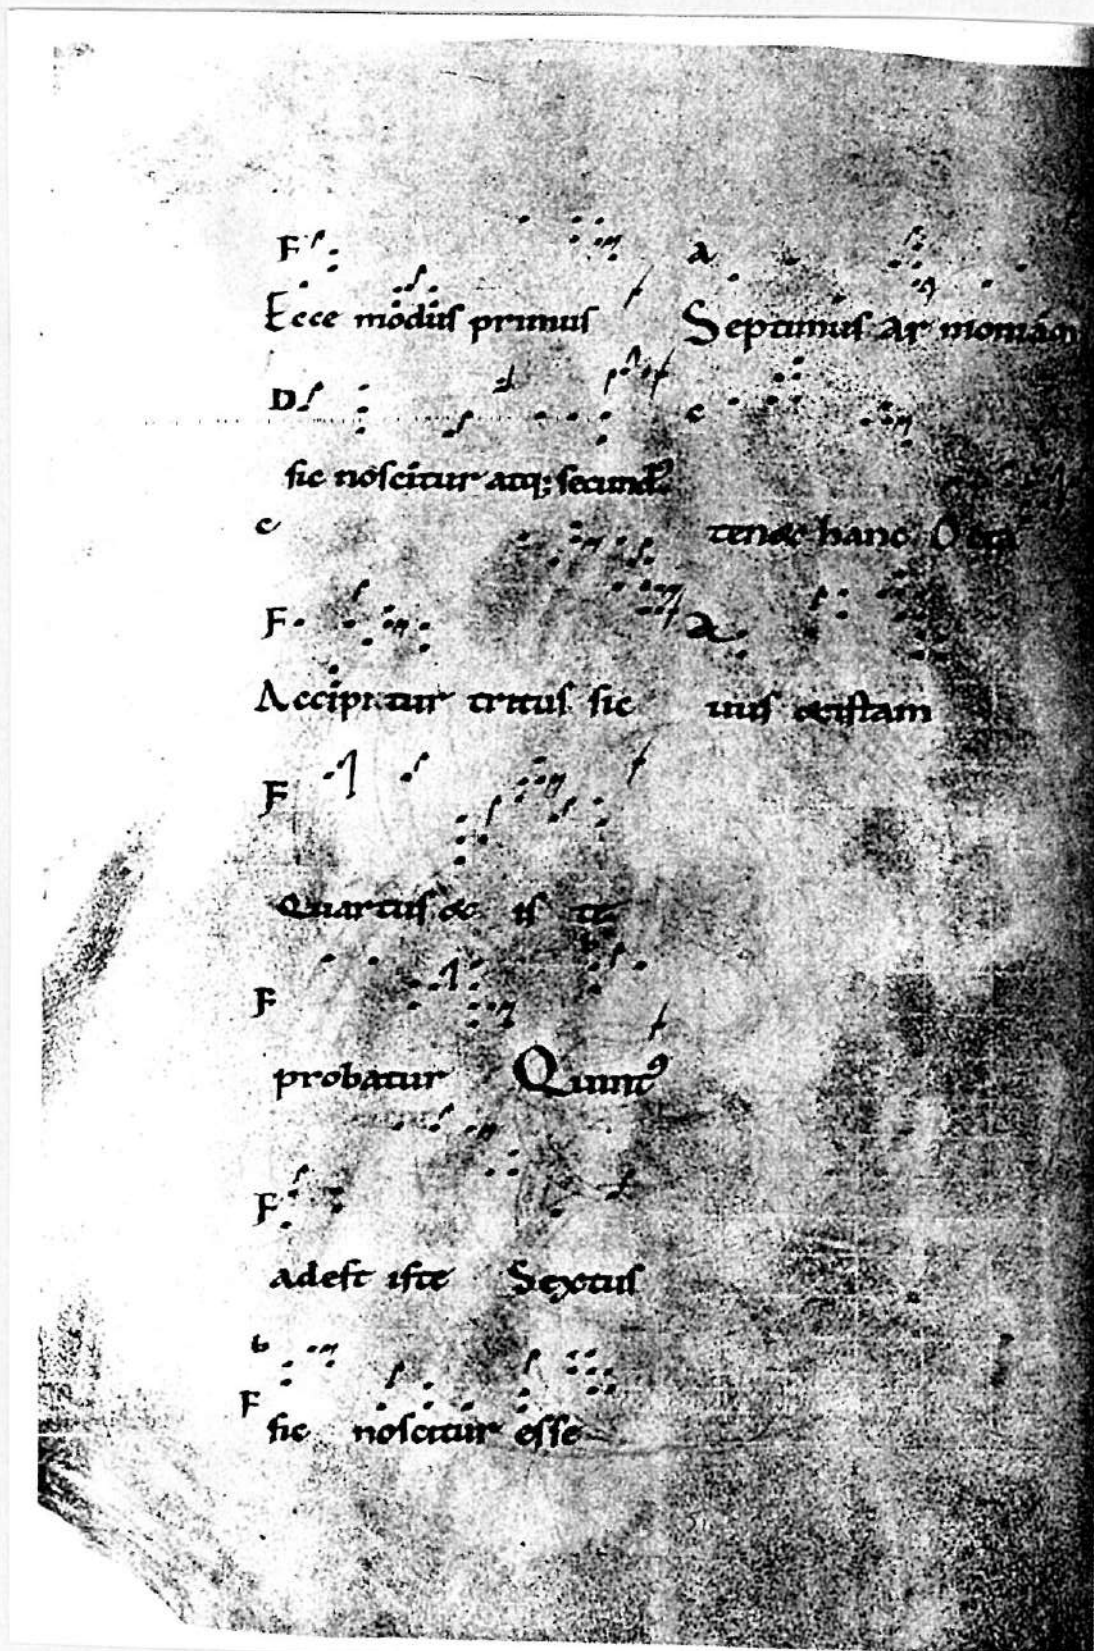 F
Ecce modus primus
D
sic noscitur atq; secund9
c
F
Accipitur tritus sic
F
Quartus & is te
F
probatur Quint9
F
adest iste Sextus
b
F
sic noscitur esse
a
Septimus Ar moniam
c
tenet hanc
a
uus & istam